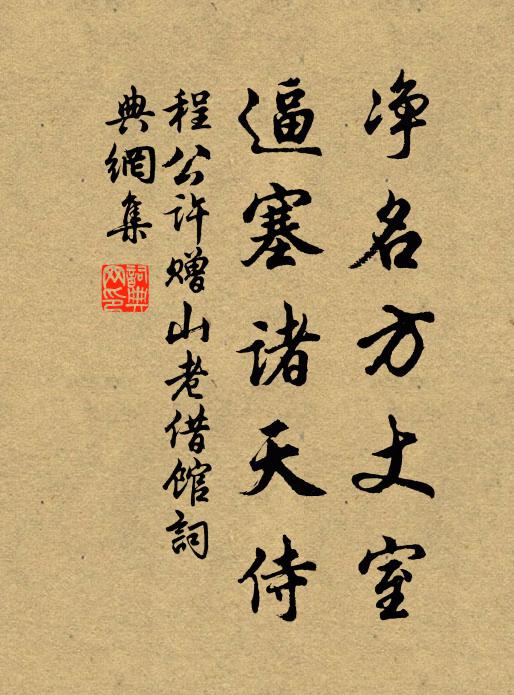 净名方丈室
逼塞诸天侍
程公许赠山老借馆詞
典網集
詞典網印